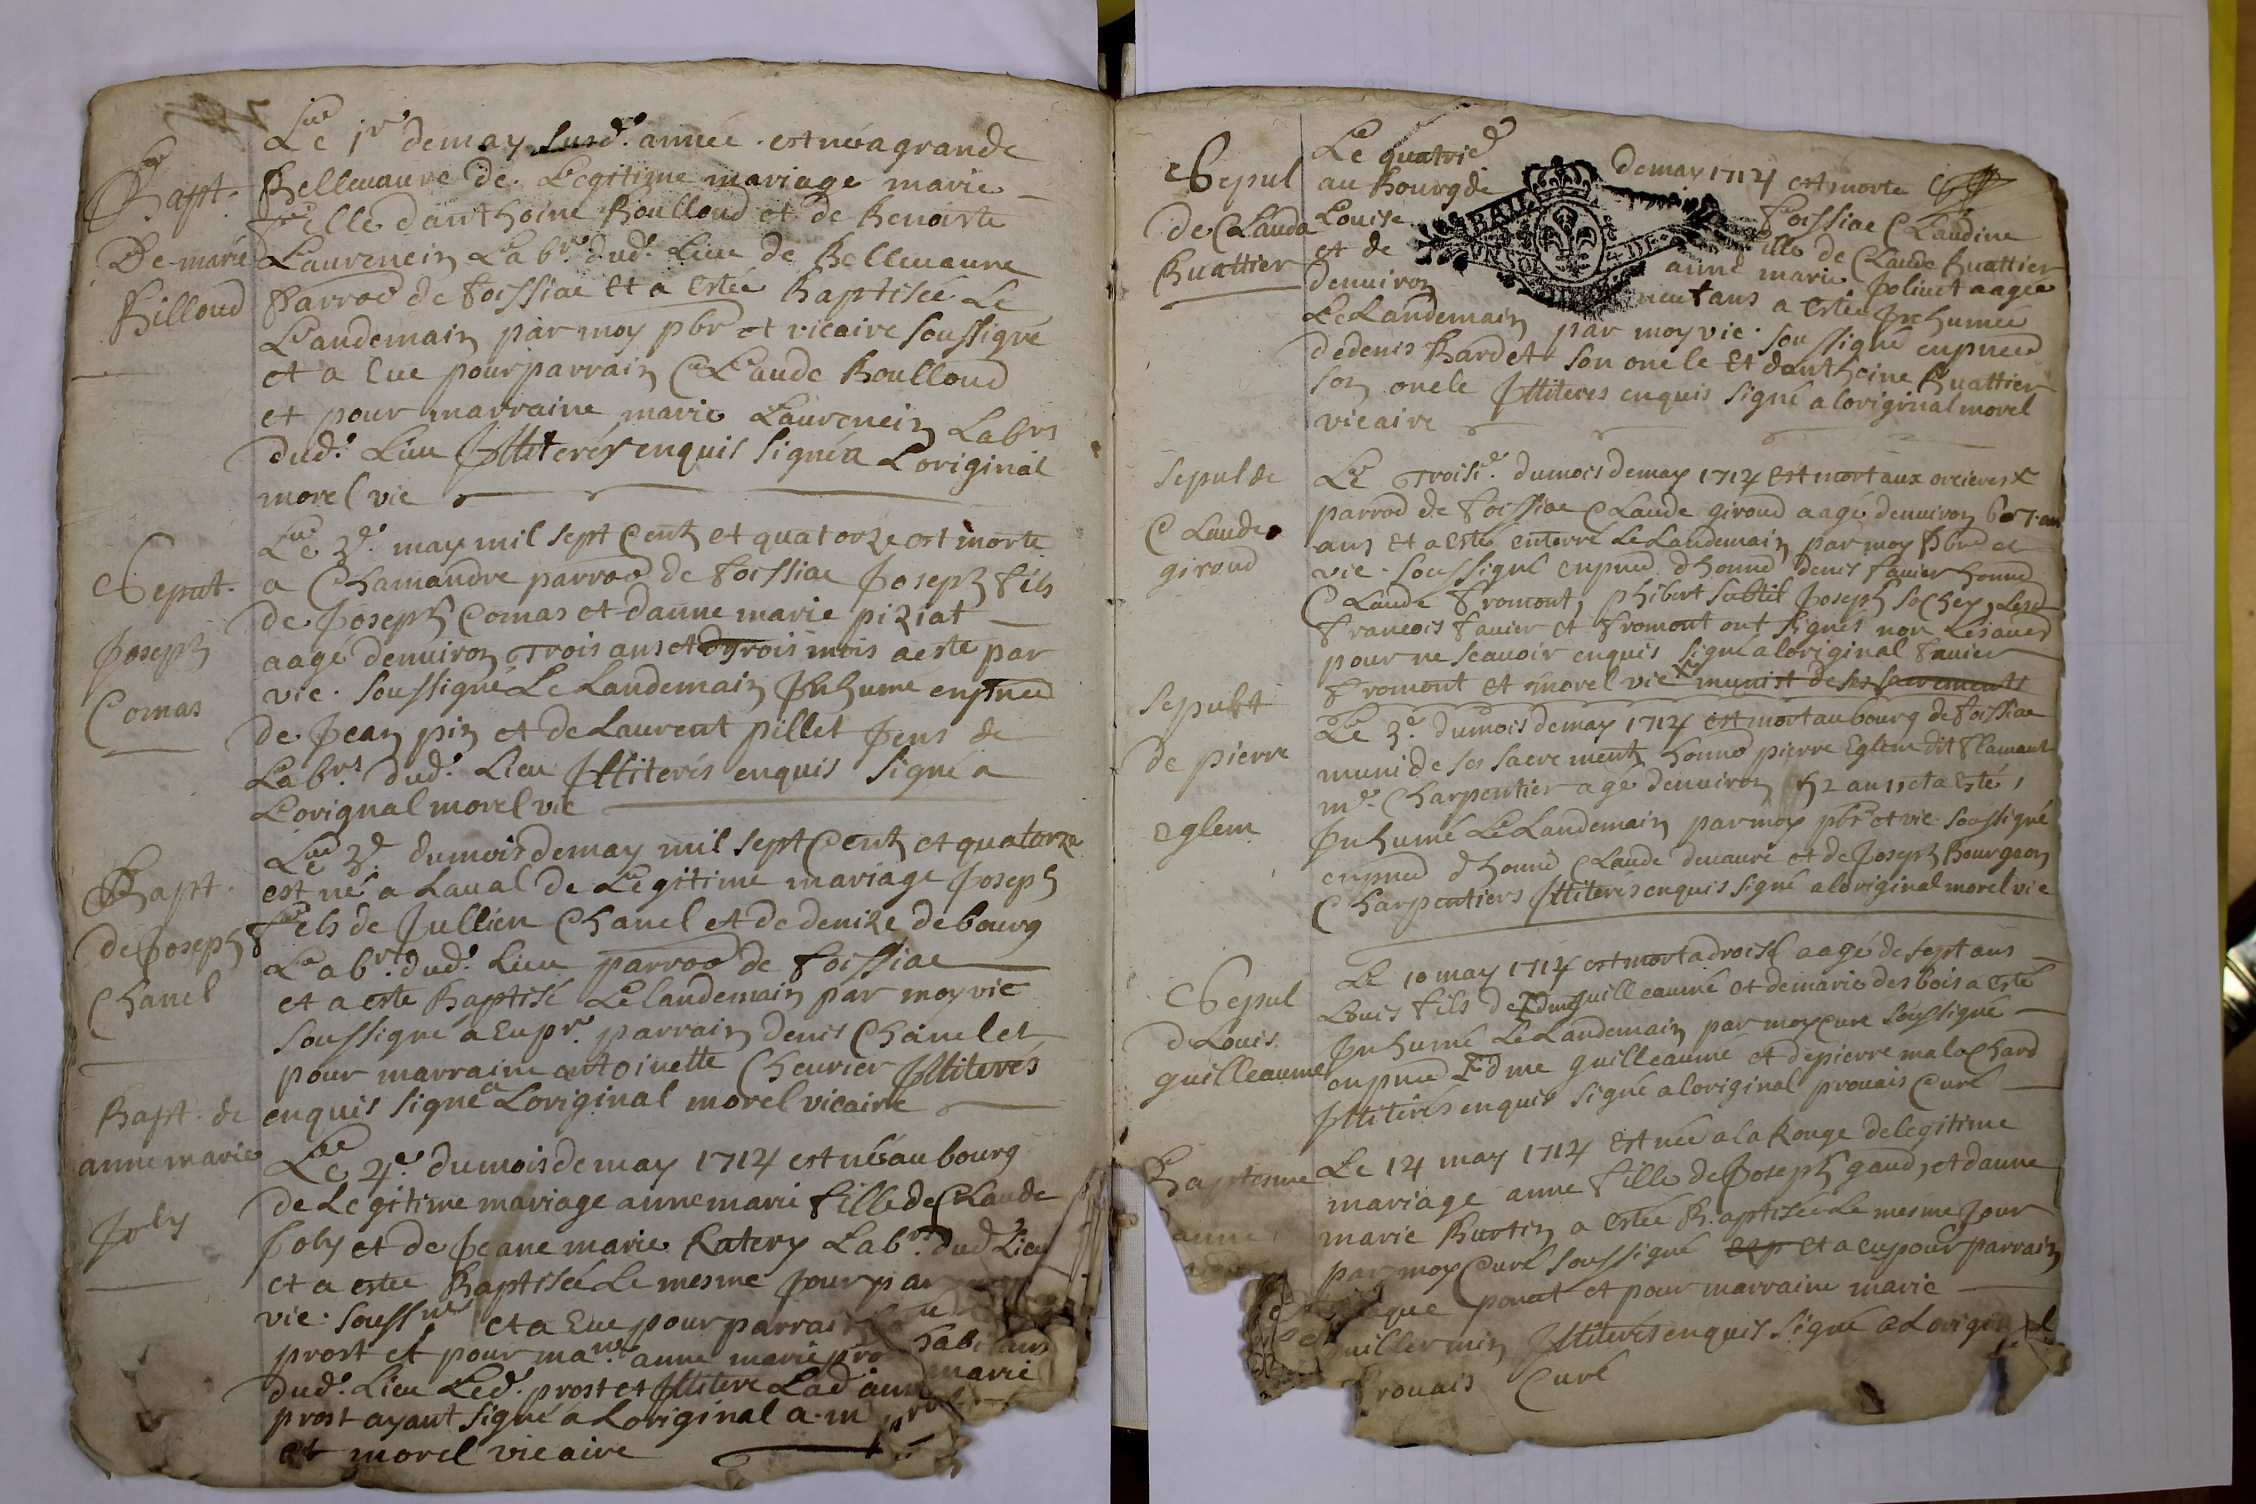 Bapt.
De marie
Billoud
Le 1r demay susd. année est née a grande
Bellevavre de Legitime mariage marie
Fille danthoine Boulloud et de Benoiste
Laurencin Labr. dud. Lieu de Bellevavre
Parroe de foissiac et a estée Baptisée Le
Landemain par moy pbr et vicaire soussigné
et a Eue pour parrain Claude Boulloud
et pour marraine marie Laurencin Labrs
dud. Lieu Jlliterés enquis signé a Loriginal
morel vic
Sepult.
Joseph
Comas
Le 3e. may mil sept Cent et quatorze est morte
a Chamandre parroe de foissiac Joseph fils
de Joseph Comas et danne marie piziat
aagé denviron Trois ans et Trois mois a este par
vic. soussigné Le Landemain Jnhumé enpnce
de Jean pin et de Laurent pillet Jens de
Labrs dud. Lieu Jlliterés enquis signé a
Lorignal morel vic
Bapt.
de Joseph
Chanel
Le 3e. dumois demay mil sept Cent et quatorze
est né a Laval de Legitime mariage Joseph
Fils de Jullien Chanel et de denize debourg
Labrs. dud. Lieu parroe de foissiac
et a este Baptisé Le landemain par moy vic
soussigné a Eu pr. parrain denis Chanel et
pour marraine antoinette Chevrier Jlliterés
enquis signé a Loriginal morel vicaire
Bapt. de
anne marie
Joly
Le 4e. dumois demay 1714 est née au bourg
de Legitime mariage anne marie fille de Claude
Joly et de Jeane marie Ratery Labrs. dud Lieu
et a estee Baptisée Le mesme Jour par
vic. souss.né et a Eue pour parrain
prost et pour mar.ne anne marie pro habitans
dud. Lieu Led. prost et Jllitere Lad anne marie
prost ayant signé a Loriginal a. m
et morel vicaire
Sepul
de Clauda
Buattier
Le quatrie demay 1714 est morte
au Bourg de foissiac Claudine
Louise fille de Claude Buattier
et de anne marie Jolivet aagee
denviron neuf ans a estée Jnhumee
Le Landemain par moy vic. soussigné enpnce
dedenis Bardet son oncle et danthoine Buattier
son oncle Jlliteres enquis signé a loriginal morel
vicaire
Sepul de
Claude
giroud
Le Troisie. dumois demay 1714 est mort aux orcieres
parroe de foissiac Claude giroud aagé denviron
ans et a esté enterré Le Landemain par moy Pbre et
vic. soussigné enpnce dhonne denis favier honne
Claude fromont, phibert subtil Joseph sochey,
francois favier et fromont ont signés non
pour ne scavoir enquis signé a loriginal favier
fromont et morel vic munist de ses sacrements
Sepult
de pierre
eglem
Le 3e. dumois demay 1714 est mort au bourg de foissiac
muni de ses sacrements honne pierre Eglem dit flamant
me. Charpentier agé denviron 52 ans et a esté,
Jnhumé Le Landemain par moy pbr et vic soussigné
enpnce dhonne Claude devavre et de Joseph Bourgeon
Charpentiers Jlliterés enquis signé a loriginal morel vic
Sepul
de Louis
guilleaume
Le 10 may 1714 est mort a aagé de sept ans
Louis fils de Edme guilleaume et de marie des bois a esté
Jnhumé Le Landemain par moy Curé soussigné
enpnce Edme guilleaume et de pierre malochard
Jlliterés enquis signé a loriginal provais Curé
Baptesme
anne
Le 14 may 1714 est née a la Rouge delegitime
mariage anne fille de Joseph gaud, et danne
marie Burtin a estée Baptisée Le mesme Jour
par moy Curé soussigné et a eu pour parrain
et pour marraine marie
Jlliterés enquis signé a Loriginal
provais Curé